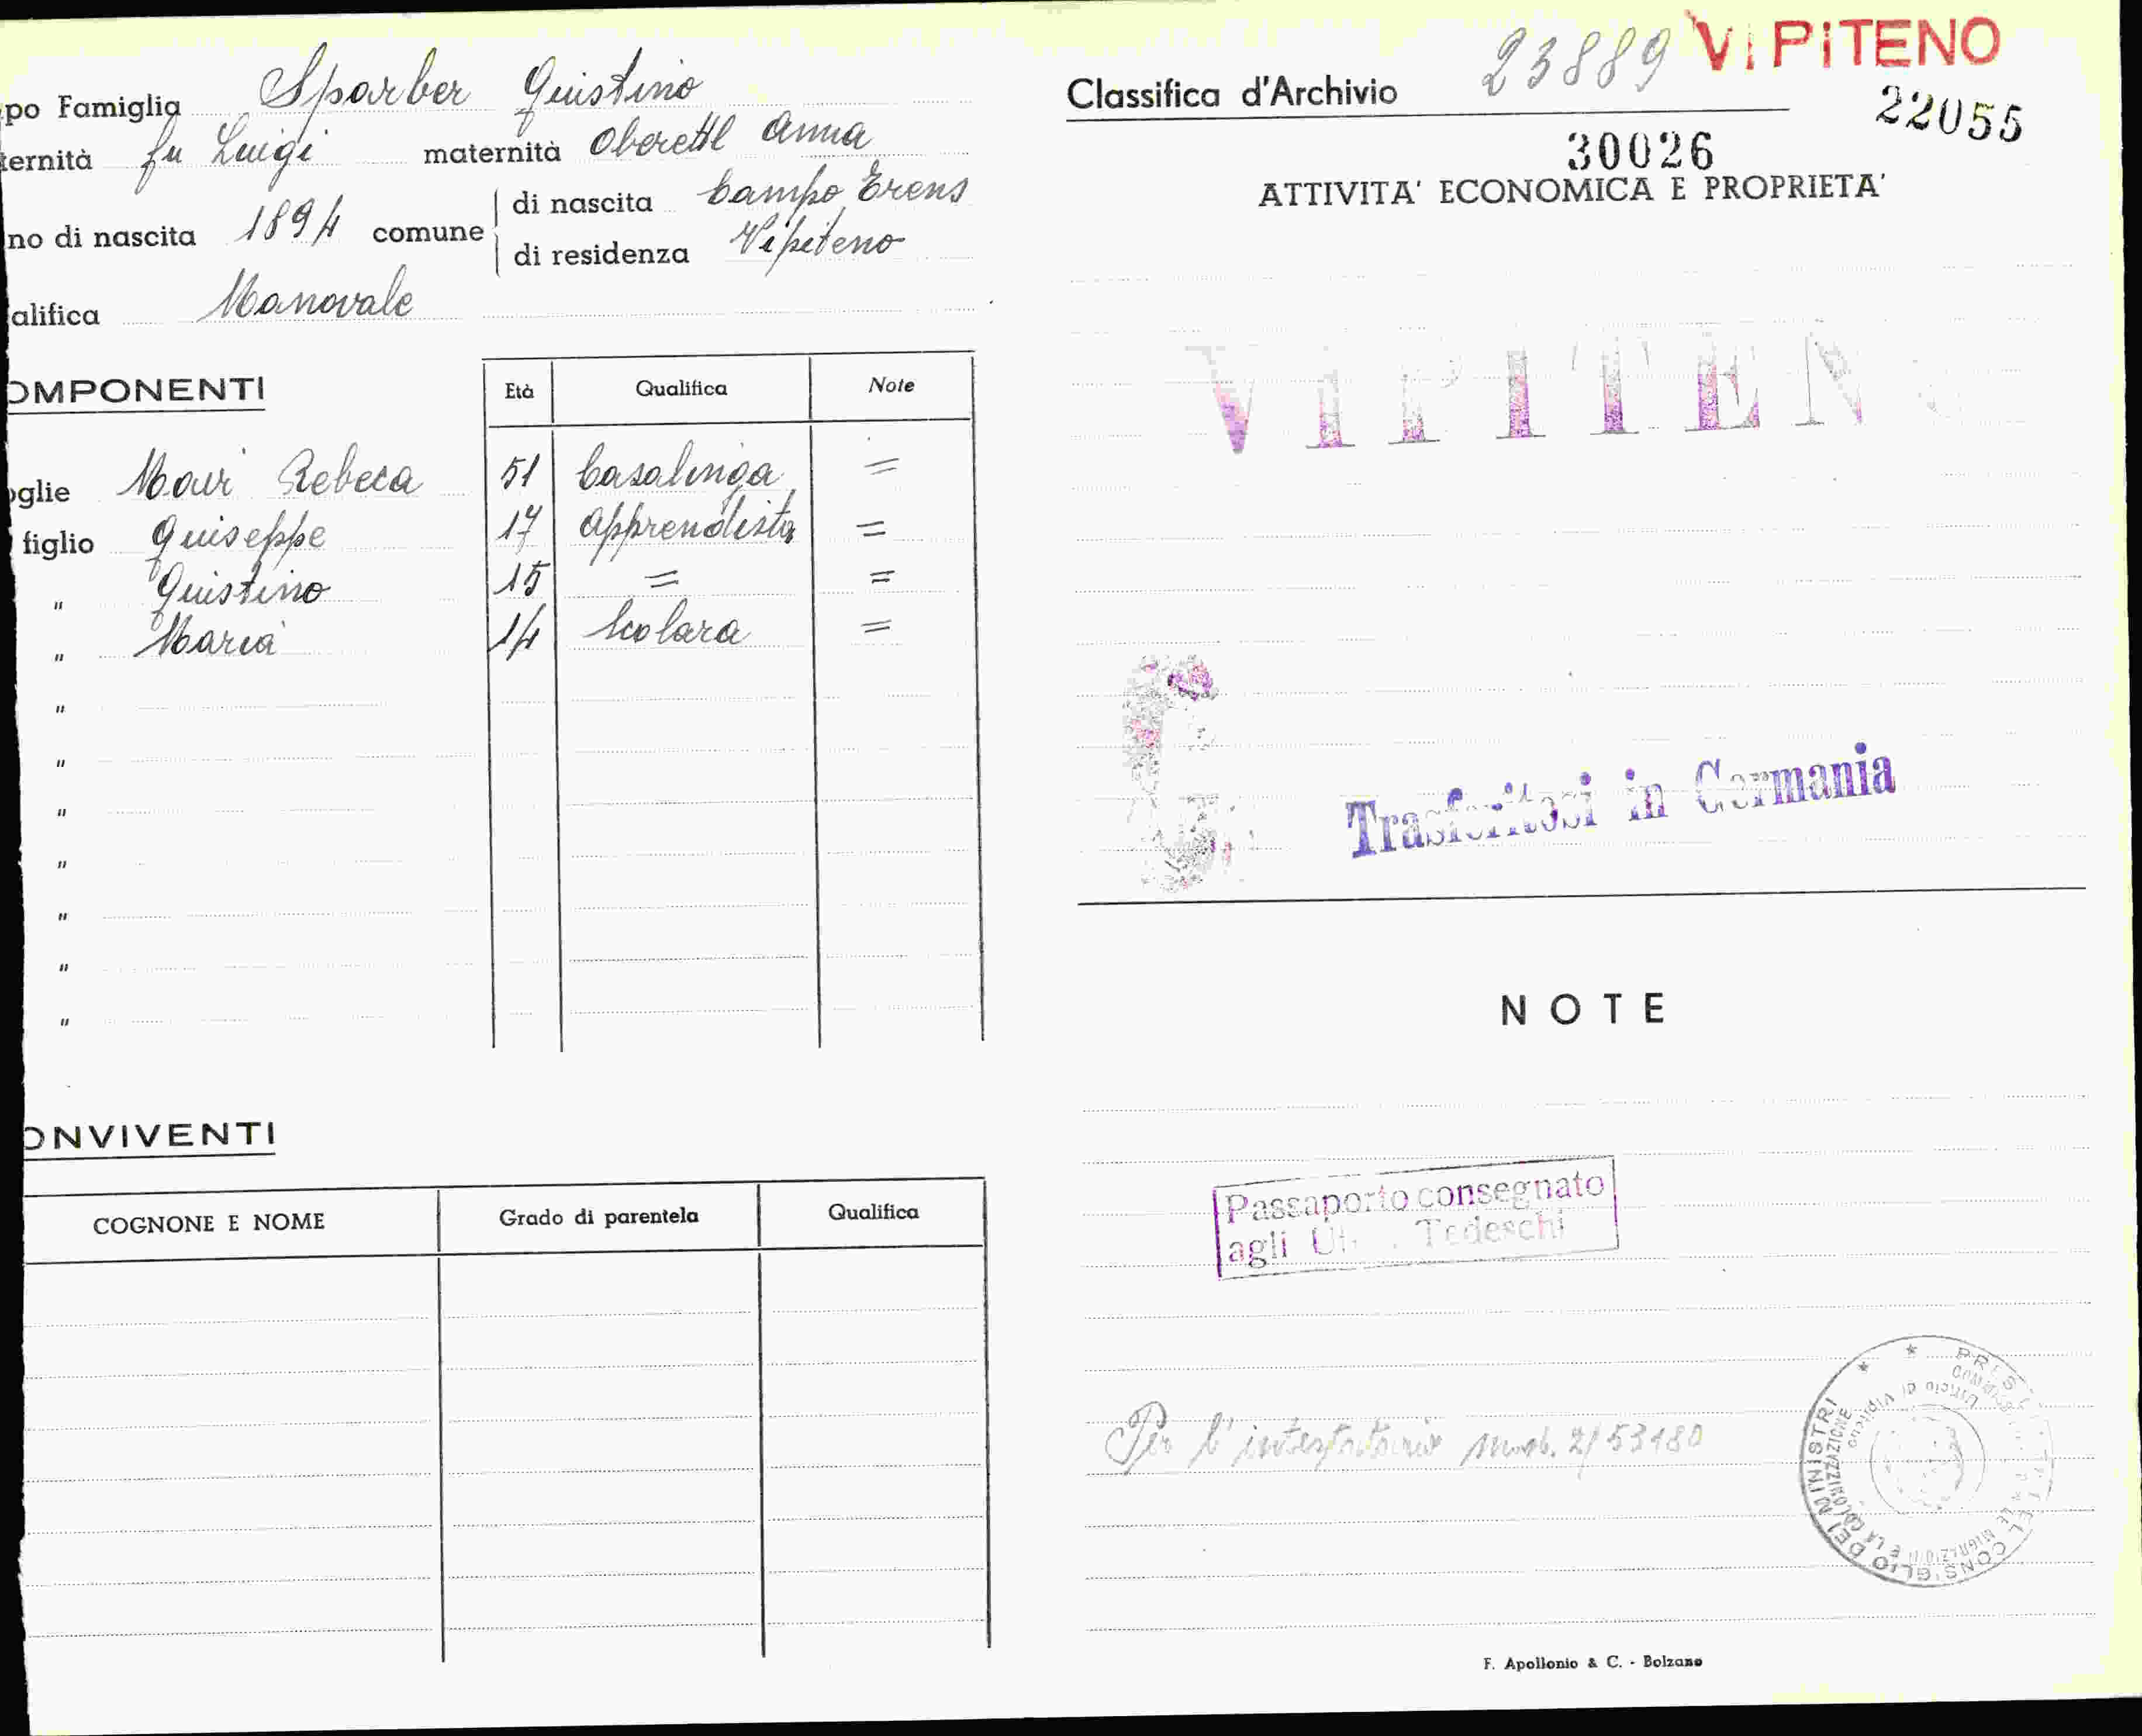 po Famiglia Sparber Giustino
ternità fu Luigi maternità Oberettl Anna
no di nascita 1894 comune di nascita Campo Trens
di residenza Vipiteno
alifica Manovale
OMPONENTI Età Qualifica Note
oglie Mair Rebeca 51 Casalinga =
figlio Giuseppe 17 apprendista =
" Giustino 15 = =
" Maria 14 Scolara =
"
"
"
"
"
"
"
ONVIVENTI
COGNONE E NOME Grado di parentela Qualifica
Classifica d'Archivio 23889 VIPITENO
22055
30026
ATTIVITA' ECONOMICA E PROPRIETA'
VIPITENO
G.
Trasferitosi in Germania
NOTE
Passaporto consegnato
agli Tedeschi
Per l'intestatario mod. 2/53180
CONSIGLIO DEI MINISTRI
E LA COLONIZZAZIONE
Ufficio di Vipiteno
F. Apollonio & C. - Bolzano